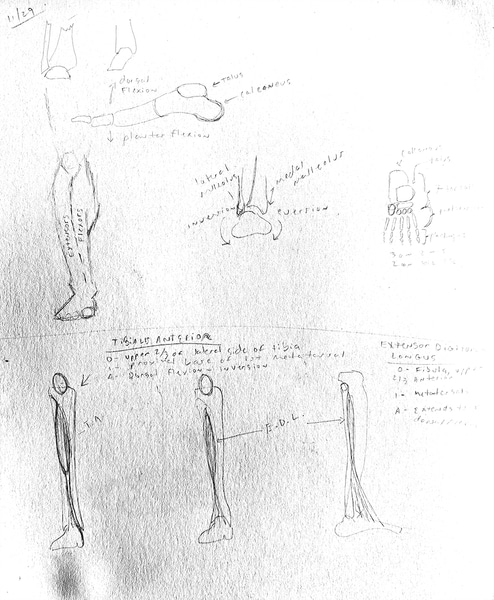 11/29
dorsal
flexion
talus
calcaneus
plantar flexion
lateral
malleolus
medial
malleolus
inversion
eversion
calcaneus
talus
phalanges
extensors
flexors
Tibialis Anterior
O- upper 2/3 of lateral side of tibia
I- proximal base of 1st metatarsal
A- Dorsal Flexion - inversion
T.A.
E.D.L.
Extensor Digitor
Longus
O- Fibula, upper
2/3 Anterior
I- metatarsal
A- Extends